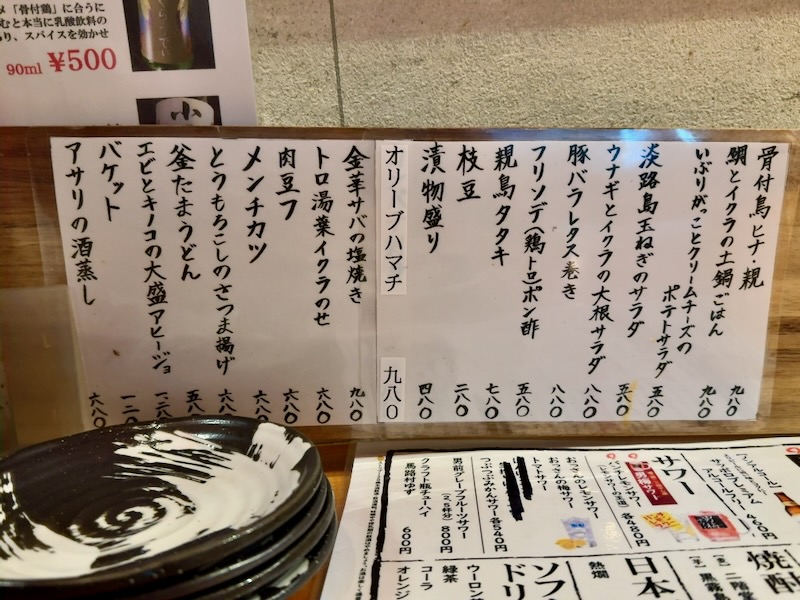 メ「骨付鶏」に合うに
むと本当に乳酸飲料の
り、スパイスを効かせ
90ml ¥500
小
骨付鳥ヒナ・親 九八〇
鯛とイクラの土鍋ごはん 九八〇
いぶりがっことクリームチーズの
ポテトサラダ 五八〇
淡路島玉ねぎのサラダ 五八〇
ウナギとイクラの大根サラダ 八八〇
豚バラレタス巻き 八八〇
フリソデ(鶏トロ)ポン酢 五八〇
親鳥タタキ 七八〇
枝豆 二八〇
漬物盛り 四八〇
オリーブハマチ 九八〇
金華サバの塩焼き 九八〇
トロ湯葉イクラのせ 六八〇
肉豆フ 六八〇
メンチカツ 六八〇
とうもろこしのさつま揚げ 六八
釜たまうどん 五八
エビとキノコの大盛アヒージョ 一二八
バケット 一二〇
アサリの酒蒸し 六八〇
アルコールフリー 460円
サワー
各480円
おっさんのレモンサワー
おっさんの梅サワー
トマトサワー
つぶつぶみかんサワー 各540円
男前グレープフルーツサワー
(2、3杯分) 800円
クラフト瓶チューハイ
馬路村ゆず 600円
焼酎
二階堂
黒霧島
日本
熱燗
ソフ
ドリ
ウーロン
緑茶
コーラ
オレンジ